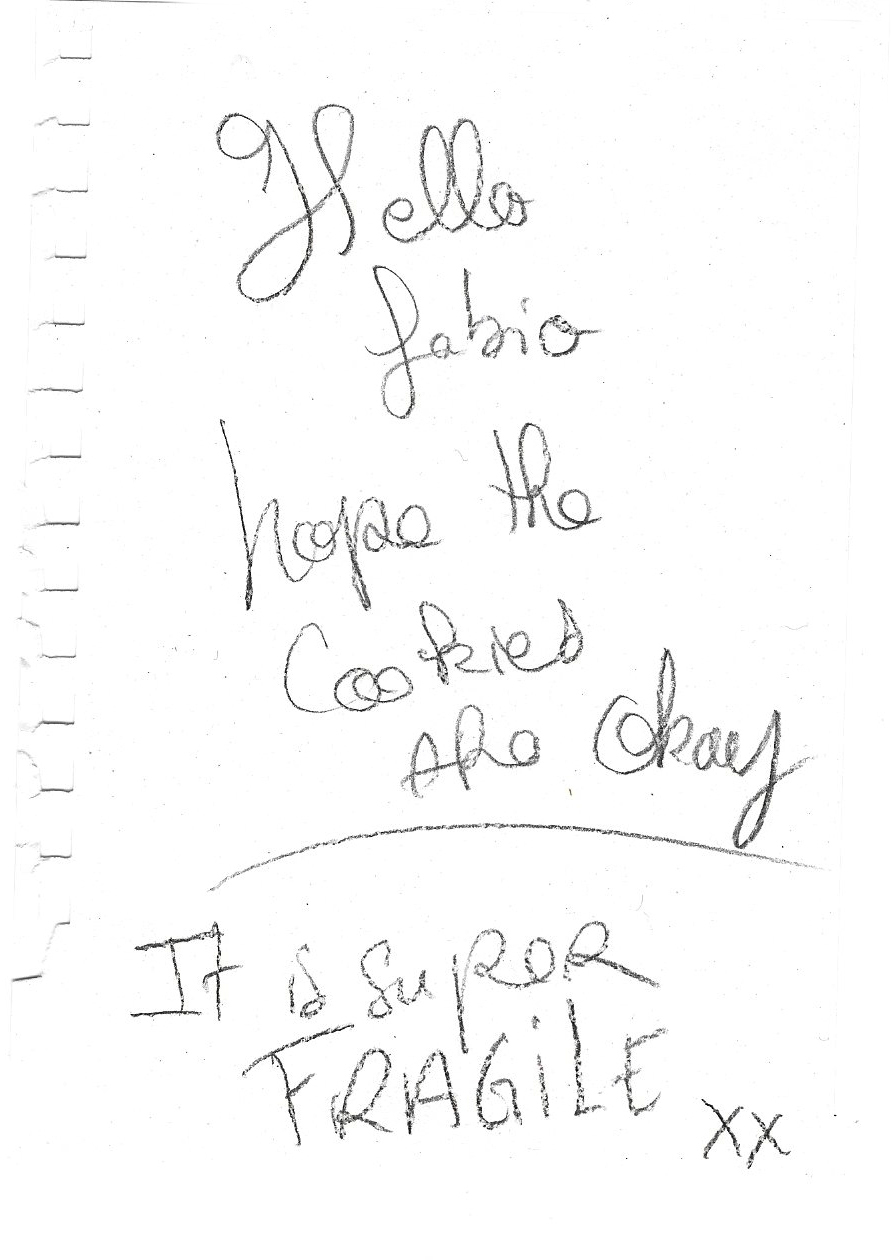 Hello
fabio
hope the
Cookies
are Okay
It is SupeR
FRAGiLE
xx